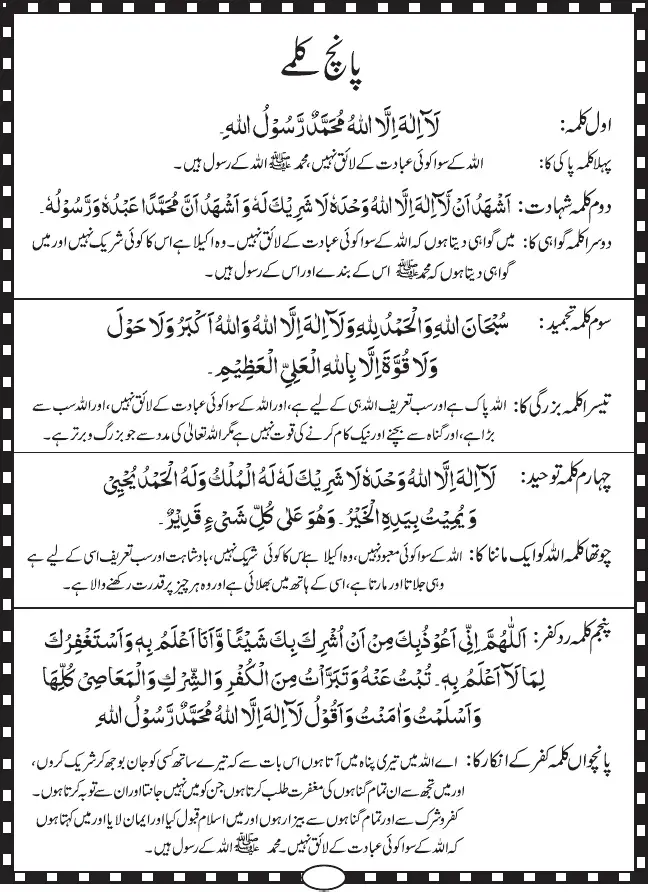 پانچ کلمے
اول کلمہ: لَآ اِلٰهَ اِلَّا اللهُ مُحَمَّدٌ رَّسُوْلُ اللهِ۔
پہلا کلمہ پاکی کا: اللہ کے سوا کوئی عبادت کے لائق نہیں، محمد ﷺ اللہ کے رسول ہیں۔
دوم کلمہ شہادت: اَشْهَدُ اَنْ لَّآ اِلٰهَ اِلَّا اللهُ وَحْدَهٗ لَا شَرِيْكَ لَهٗ وَ اَشْهَدُ اَنَّ مُحَمَّدًا عَبْدُهٗ وَرَسُوْلُهٗ۔
دوسرا کلمہ گواہی کا: میں گواہی دیتا ہوں کہ اللہ کے سوا کوئی عبادت کے لائق نہیں۔ وہ اکیلا ہے اس کا کوئی شریک نہیں اور میں
گواہی دیتا ہوں کہ محمد ﷺ اس کے بندے اور اس کے رسول ہیں۔
سوم کلمہ تمجید: سُبْحَانَ اللهِ وَالْحَمْدُ لِلّٰهِ وَلَآ اِلٰهَ اِلَّا اللهُ وَاللهُ اَكْبَرُ وَلَا حَوْلَ
وَلَا قُوَّةَ اِلَّا بِاللهِ الْعَلِيِّ الْعَظِيْمِ۔
تیسرا کلمہ بزرگی کا: اللہ پاک ہے اور سب تعریف اللہ ہی کے لیے ہے، اور اللہ کے سوا کوئی عبادت کے لائق نہیں، اور اللہ سب سے
بڑا ہے، اور گناہ سے بچنے اور نیک کام کرنے کی قوت نہیں ہے مگر اللہ تعالیٰ کی مدد سے جو بزرگ و برتر ہے۔
چہارم کلمہ توحید: لَآ اِلٰهَ اِلَّا اللهُ وَحْدَهٗ لَا شَرِيْكَ لَهٗ لَهُ الْمُلْكُ وَلَهُ الْحَمْدُ يُحْيِيْ
وَ يُمِيْتُ بِيَدِهِ الْخَيْرُ۔ وَهُوَ عَلٰى كُلِّ شَيْءٍ قَدِيْرٌ۔
چوتھا کلمہ اللہ کو ایک ماننا کا: اللہ کے سوا کوئی معبود نہیں، وہ اکیلا ہے اس کا کوئی شریک نہیں، بادشاہت اور سب تعریف اسی کے لیے ہے
وہی جلاتا اور مارتا ہے، اسی کے ہاتھ میں بھلائی ہے اور وہ ہر چیز پر قدرت رکھنے والا ہے۔
پنجم کلمہ رد کفر: اَللّٰهُمَّ اِنِّيْ اَعُوْذُ بِكَ مِنْ اَنْ اُشْرِكَ بِكَ شَيْئًا وَّاَنَا اَعْلَمُ بِهٖ وَاَسْتَغْفِرُكَ
لِمَا لَآ اَعْلَمُ بِهٖ۔ تُبْتُ عَنْهُ وَتَبَرَّاْتُ مِنَ الْكُفْرِ وَالشِّرْكِ وَالْمَعَاصِيْ كُلِّهَا
وَاَسْلَمْتُ وَاٰمَنْتُ وَاَقُوْلُ لَآ اِلٰهَ اِلَّا اللهُ مُحَمَّدٌ رَّسُوْلُ اللهِ
پانچواں کلمہ کفر کے انکار کا: اے اللہ میں تیری پناہ میں آتا ہوں اس بات سے کہ تیرے ساتھ کسی کو جان بوجھ کر شریک کروں،
اور میں تجھ سے ان تمام گناہوں کی مغفرت طلب کرتا ہوں جن کو میں نہیں جانتا اور ان سے توبہ کرتا ہوں۔
کفر و شرک سے اور تمام گناہوں سے بیزار ہوں اور میں اسلام قبول کیا اور ایمان لایا اور میں کہتا ہوں
کہ اللہ کے سوا کوئی عبادت کے لائق نہیں۔ محمد ﷺ اللہ کے رسول ہیں۔